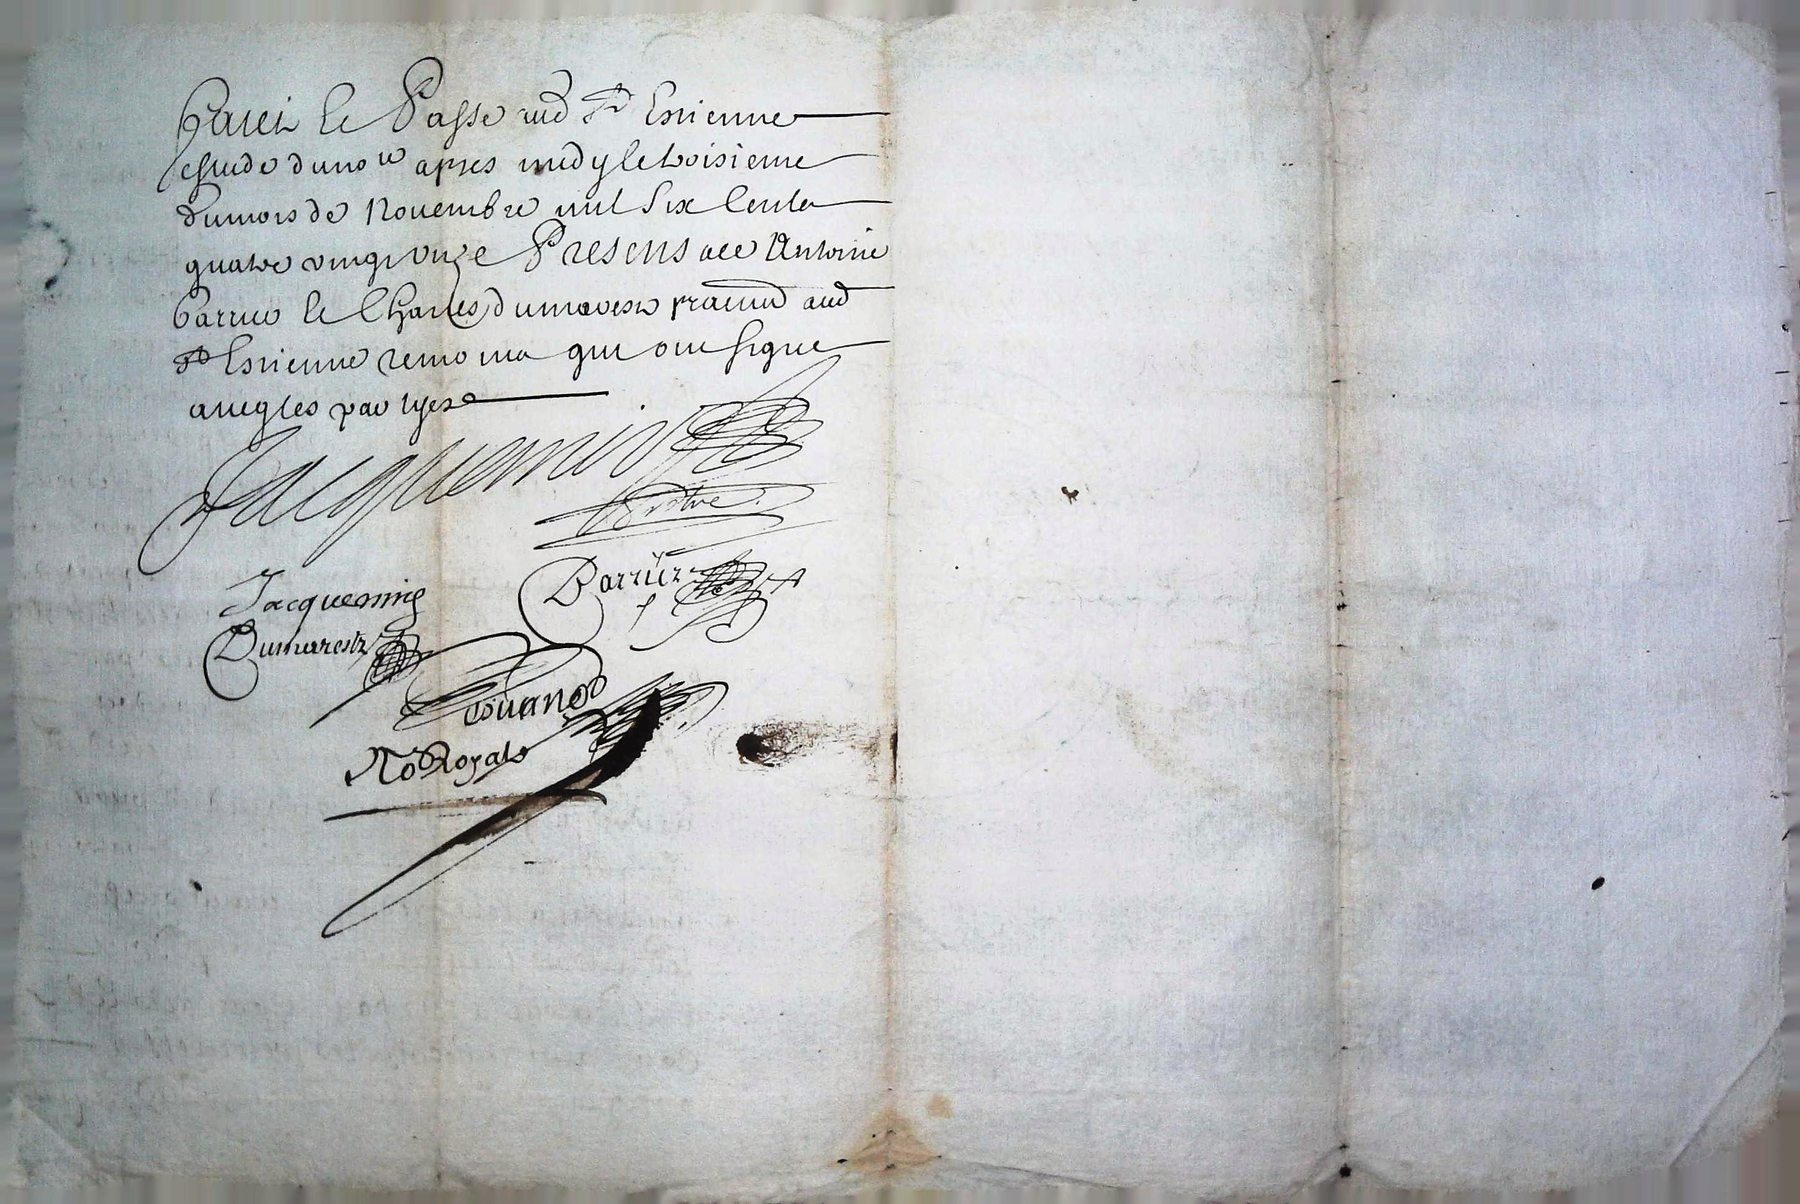 faict et Passé aud St Estienne
estude du nore apres midy le troisieme
du mois de Novembre mil six Cents
quatre vingt unze Presens me Antoine
barrier et Charles dumarest pratud aud
St Estienne temoins qui ont signe
avecq les partyes
Jacquemin
Jacquemin
Barrier
Dumarestz
No Royal